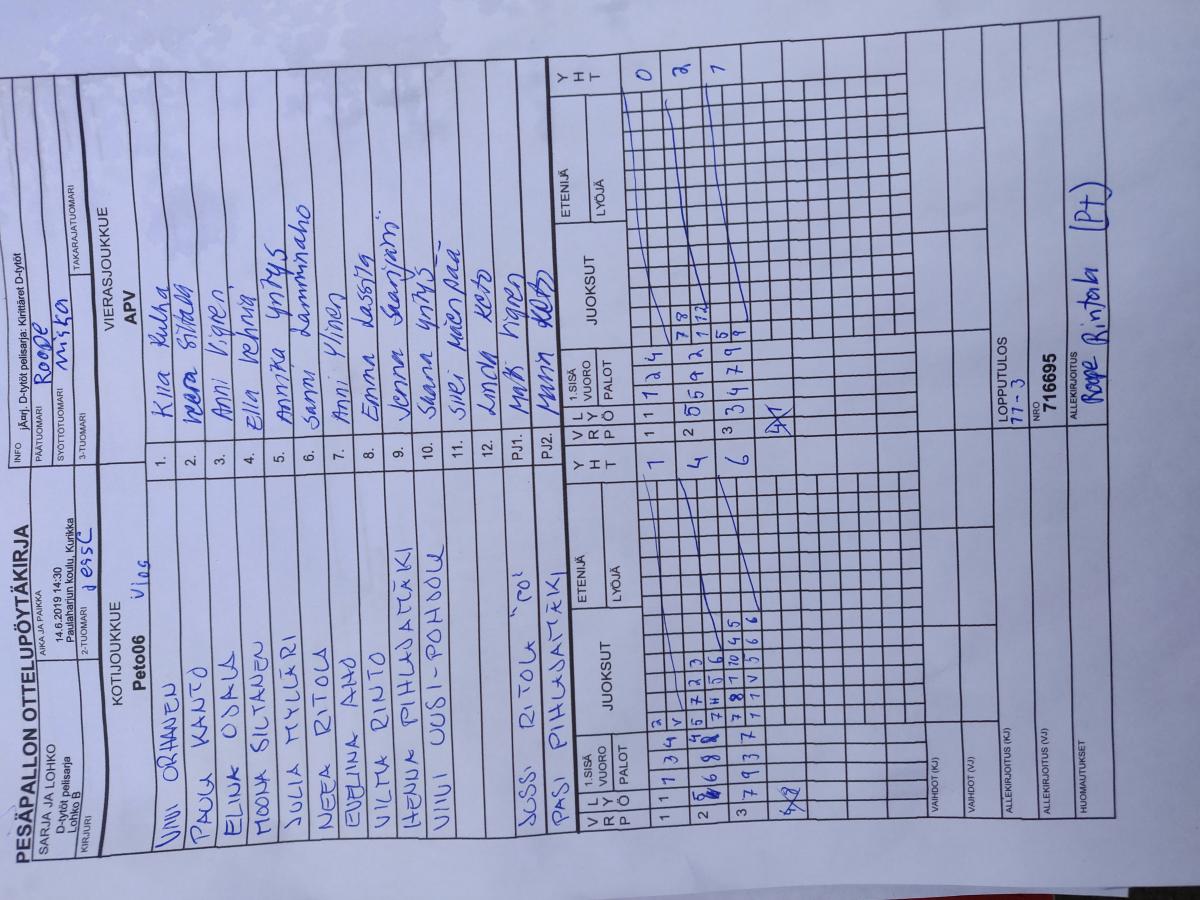 PESÄPALLON OTTELUPÖYTÄKIRJA
SARJA JA LOHKO
D-tytöt pelisarja
Lohko B
AIKA JA PAIKKA
14.6.2019 14:30
Paulaharjun koulu, Kurikka
INFO jÃ¤rj. D-tytöt pelisarja: Kirittäret D-tytöt
PÄÄTUOMARI Roope
SYÖTTÖTUOMARI Miska
KIRJURI
2-TUOMARI Jessc
3-TUOMARI
TAKARAJATUOMARI
KOTIJOUKKUE
Peto06 Ulos
VIERASJOUKKUE
APV
VIIVI ORHANEN 1. Kiia Kulha
PAULA KANTO 2. Veera Siltala
ELINA OJALA 3. Anni Vigren
MOONA SILTANEN 4. Ella Vehniä
JULIA MYLLÄRI 5. Annika Yntys
NEEA RITOLA 6. Sanni Lamminaho
EVELIINA AHO 7. Anni Ylinen
VILMA RINTO 8. Emma Lassila
HENNA PIHLAJAMÄKI 9. Jenna
VIIVI UUSI-POHJOLA 10. Saana Yntys
11. Siiri Mäenpää
12. Linda Keto
JUSSI RITOLA "PO" PJ1. Vigren
PASI PIHLAJAMÄKI PJ2. Keto
V L 1.SISÄ ETENIJÄ Y V L 1.SISÄ ETENIJÄ Y
R Y VUORO JUOKSUT H R Y VUORO JUOKSUT H
P Ö PALOT LYÖJÄ T P Ö PALOT LYÖJÄ T
1 1 1 3 4 2 1 1 1 1 2 4 0
V
2 5 6 8 8 4 5 7 2 3 4 2 5 5 9 2 7 8 2
7 H 5 6 1 12
3 7 9 3 7 7 8 1 10 4 5 6 3 3 4 7 9 5 1
1 1 V 5 6 6 9
VAIHDOT (KJ)
VAIHDOT (VJ)
ALLEKIRJOITUS (KJ)
LOPPUTULOS
11-3
ALLEKIRJOITUS (VJ)
NRO
716695
HUOMAUTUKSET
ALLEKIRJOITUS
Roope Rintala (PT)